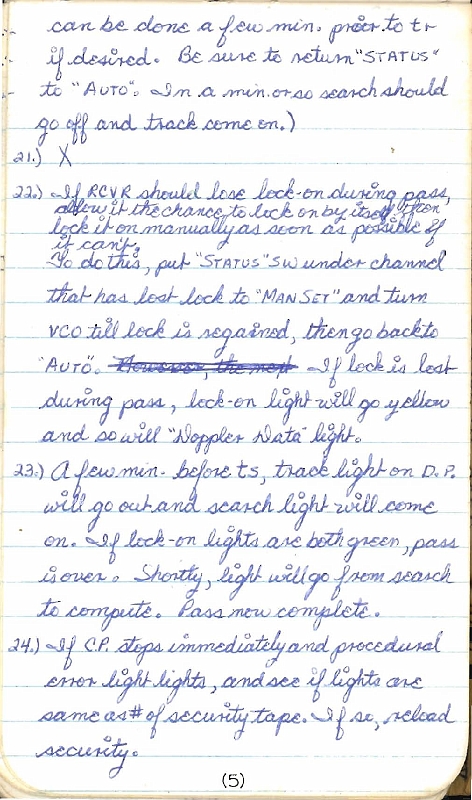 can be done a few min. prior to tr
if desired. Be sure to return "STATUS"
to "AUTO". In a min. or so search should
go off and track come on.)
21.) X
22.) If RCVR should lose lock-on during pass,
allow it the chance to lock on by itself, then
lock it on manually as soon as possible if
it can't.
To do this, put "STATUS" SW under channel
that has lost lock to "MAN SET" and turn
VCO till lock is regained, then go back to
"AUTO". However, the most If lock is lost
during pass, lock-on light will go yellow
and so will "Doppler Data" light.
23.) A few min. before ts, track light on D.P.
will go out and search light will come
on. If lock-on lights are both green, pass
is over. Shortly, light will go from search
to compute. Pass now complete.
24.) If C.P. stops immediately and procedural
error light lights, and see if lights are
same as # of security tape. If so, reload
security.
(5)